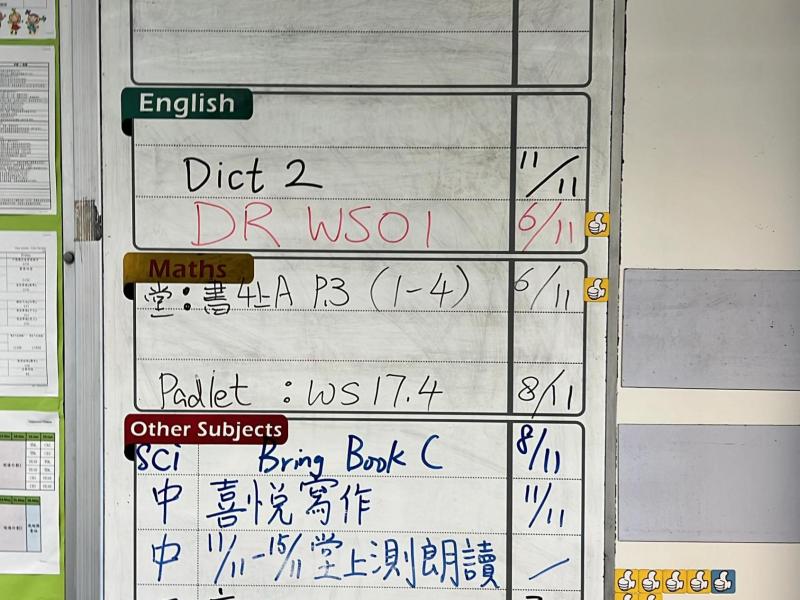 English
Dict 2 11/11
DR WS01 6/11
Maths
堂:書4上A P.3 (1-4) 6/11
Padlet : WS 17.4 8/11
Other Subjects
Sci Bring Book C 8/11
中 喜悅寫作 11/11
中 11/11-15/11 堂上測朗讀 /